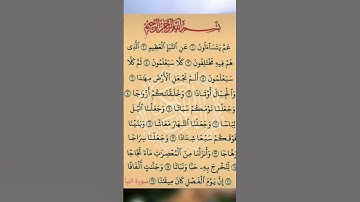 بِسْمِ اللَّهِ الرَّحْمَٰنِ الرَّحِيمِ
عَمَّ يَتَسَآءَلُونَ ۝ عَنِ ٱلنَّبَإِ ٱلْعَظِيمِ ۝ ٱلَّذِى
هُمْ فِيهِ مُخْتَلِفُونَ ۝ كَلَّا سَيَعْلَمُونَ ۝ ثُمَّ كَلَّا
سَيَعْلَمُونَ ۝ أَلَمْ نَجْعَلِ ٱلْأَرْضَ مِهَٰدًا ۝
وَٱلْجِبَالَ أَوْتَادًا ۝ وَخَلَقْنَٰكُمْ أَزْوَٰجًا ۝
وَجَعَلْنَا نَوْمَكُمْ سُبَاتًا ۝ وَجَعَلْنَا ٱلَّيْلَ
لِبَاسًا ۝ وَجَعَلْنَا ٱلنَّهَارَ مَعَاشًا ۝ وَبَنَيْنَا
فَوْقَكُمْ سَبْعًا شِدَادًا ۝ وَجَعَلْنَا
وَهَّاجًا ۝ وَأَنزَلْنَا مِنَ ٱلْمُعْصِرَٰتِ مَآءً ثَجَّاجًا
۝ لِّنُخْرِجَ بِهِۦ حَبًّا وَنَبَاتًا ۝ وَجَنَّٰتٍ أَلْفَافًا
۝ إِنَّ يَوْمَ ٱلْفَصْلِ كَانَ مِيقَٰتًا ۝ سورة النبأ